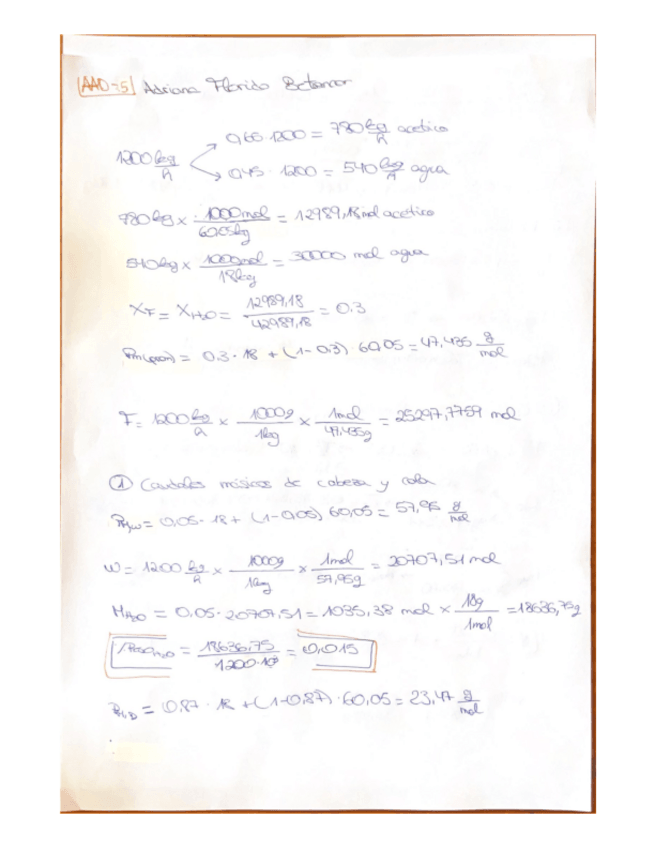 AAD-5 Adriana Florido Betancor
1200 kg/h
0,65·1200 = 780 kg/h acético
0,45·1200 = 540 kg/h agua
780 kg × 1000mol/60,05kg = 12989,18 mol acético
540 kg × 1000mol/18kg = 30000 mol agua
XF = XH2O = 12989,18/42989,18 = 0.3
= 0.3·18 + (1-0.3)·60,05 = 47,435 g/mol
F = 1200 kg/h × 1000g/1kg × 1mol/47,435g = 25297,7759 mol
① Caudales másicos de cabeza y cola
= 0,05·18 + (1-0,05) 60,05 = 57,95 g/mol
W = 1200 kg/h × 1000g/1kg × 1mol/57,95g = 20707,51 mol
MH2O = 0,05·20707,51 = 1035,38 mol × 18g/1mol = 18636,75g
H2O = 18636,75/1200·10³ = 0,015
= 0,87·18 + (1-0,87)·60,05 = 23,47 g/mol